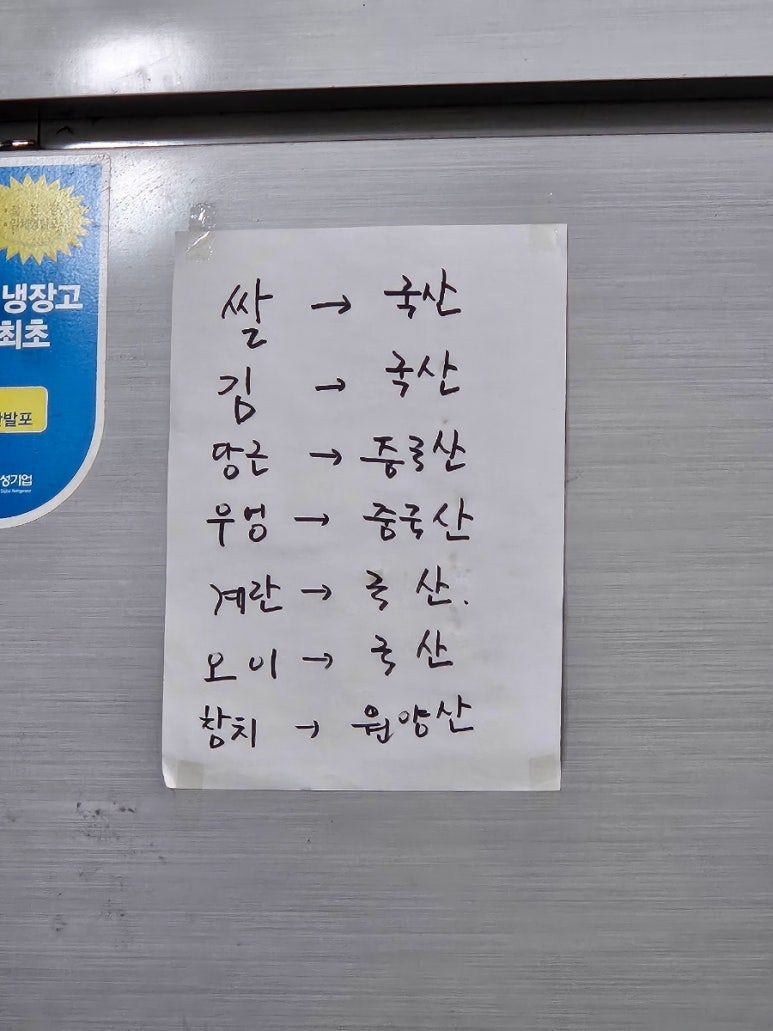 냉장고
최초
발포
성기업
쌀 → 국산
김 → 국산
당근 → 중국산
우엉 → 중국산
계란 → 국 산.
오이 → 국 산
참치 → 원양산